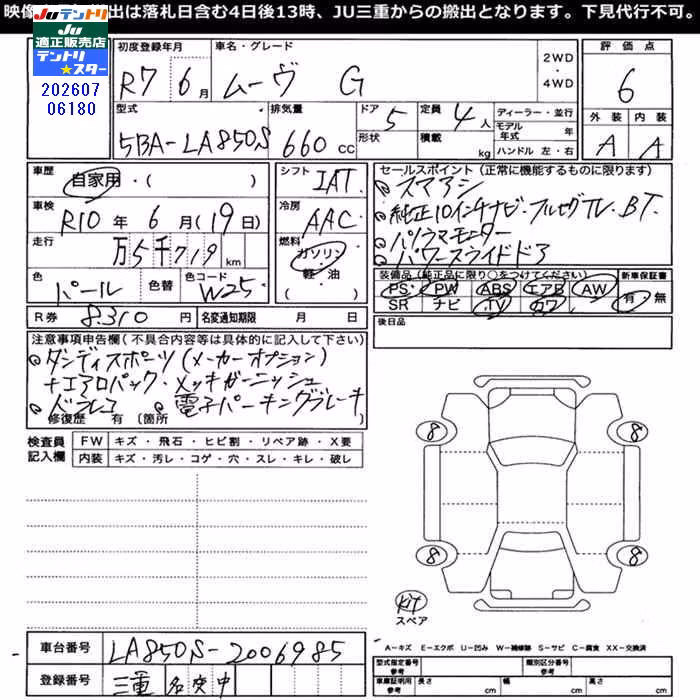 映像 出は落札日含む4日後13時、JU三重からの搬出となります。下見代行不可。
JUテントリ
JU
適正販売店
テントリ
★スター
202607
06180
初度登録年月
R7 6月
車名・グレード
ムーヴ G
2WD
・
4WD
評価点
6
型式
5BA-LA850S
排気量
660 cc
ドア
5
形状
定員
4人
積載
kg
ディーラー・並行
モデル年式 年
ハンドル 左・右
外装 内装
A A
車歴
自家用・( )
車検
R10年 6月(19日)
走行
万5千719 km
色
パール
色替
色コード
W25
シフト
IAT
冷房
AAC
燃料
ガソリン
軽・油
( )
セールスポイント(正常に機能するものに限ります)
スマアシ
純正10インチナビ・フルセグTV・BT・
パノラマモニター
パワースライドドア
装備品(純正品に限り○をつけてください)
PS PW ABS エアB AW
SR ナビ TV カワ
新車保証書
有・無
R券
8310円
名変通知期限 月 日
後日品
注意事項申告欄(不具合内容等は具体的に記入して下さい)
ダンディスポーツ(メーカーオプション)
+エアロパック・メッキガーニッシュ
ドラレコ 電子パーキングブレーキ
修復歴 有 (箇所
検査員
記入欄
FW キズ・飛石・ヒビ割・リペア跡・X要
内装 キズ・汚レ・コゲ・穴・スレ・キレ・破レ
8 8
8 8
Kit
スペア
A-キズ E-エクボ U-凹み W-補修跡 S-サビ C-腐食 XX-交換済
車台番号
LA850S-2006985
登録番号
三重 名変中
型式指定番号
参考
類別区分番号
参考
車庫証明用
参考
長さ cm
幅 cm
高さ cm